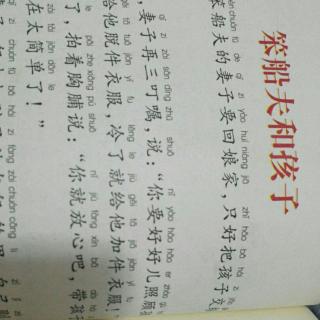 笨船夫和孩子
chuán fū de qī zi yào huí niáng jiā zhǐ hǎo bǎ hái zi
笨船夫的妻子要回娘家，只好把孩子交
qī zi zài sān dīng zhǔ shuō nǐ yào hǎo hǎo ér zhào gù
妻子再三叮嘱，说：“你要好好儿照顾
gěi tā tuō jiàn yī fu lěng le jiù gěi tā jiā jiàn yī fu
给他脱件衣服，冷了就给他加件衣服！
le pāi zhe xiōng pú shuō nǐ jiù fàng xīn ba dài hái
了，拍着胸脯说：“你就放心吧，带孩
zài tài jiǎn dān le
在太简单了！”